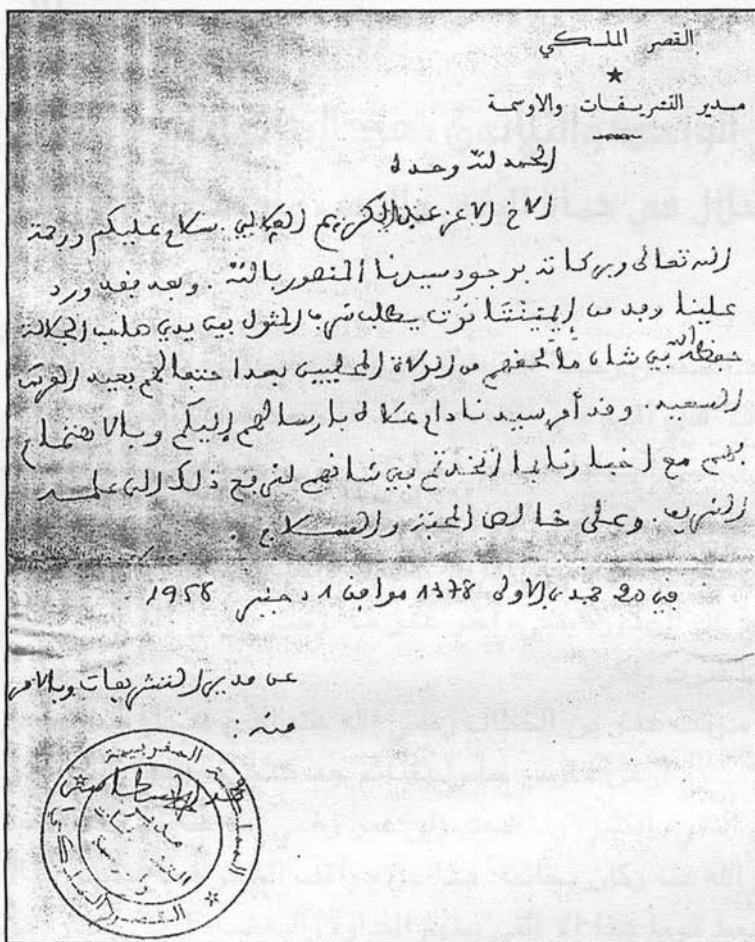 القصر الملكي
★
مدير التشريفات والاوسمة
الحمد لله وحده
الاخ الاعز عبد الكريم الفيلالي. سلام عليكم ورحمة
الله تعالى وبركاته بوجود سيدنا المنصور بالله. وبعد فقد ورد
علينا وفد من إيمينتانوت يطلب شرف المثول بين يدي صاحب الجلالة
حفظه الله في شأن ما لحقهم من الولاة المحليين بعد احتفالهم بعيد العرش
السعيد. وقد أمر سيدنا دام علاه بارسالهم إليكم وبالاهتمام
بهم مع اخبارنا بما اتخذتم في شأنهم لنرفع ذلك الى علمه
الشريف. وعلى خالص المحبة والسلام.
في 20 جمدى الاولى 1378 موافق 1 دجنبر 1958
عن مدير التشريفات وبالامر
منه:
المملكة المغربية
القصر الملكي
مدير